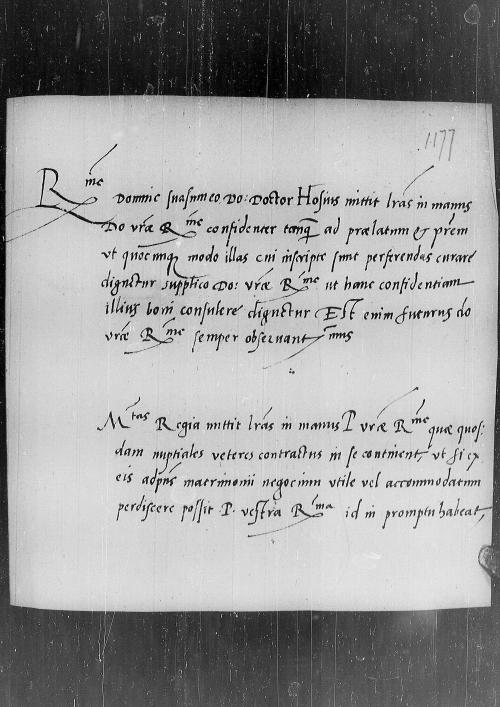 1177
Rme
Domine suasu meo Do: Doctor Hosius mittit lras in manus
Do vræ Rme confidenter tanq ad prælatum & prēm
ut quocunq modo illas cui inscripte sunt perferendas curare
dignetur supplico Do: vræ Rme ut hanc confidentiam
illius boni consulere dignetur Est enim futurus do
vræ Rme semper observantmus
Mtas Regia mittit lras in manus P vræ Rme quæ quos:
dam nuptiales veteres contractus in se continent, ut si ex
eis adpns matrimonii negocium utile vel accommodatum
perdiscere possit P. vestra Rma id in promptu habeat,